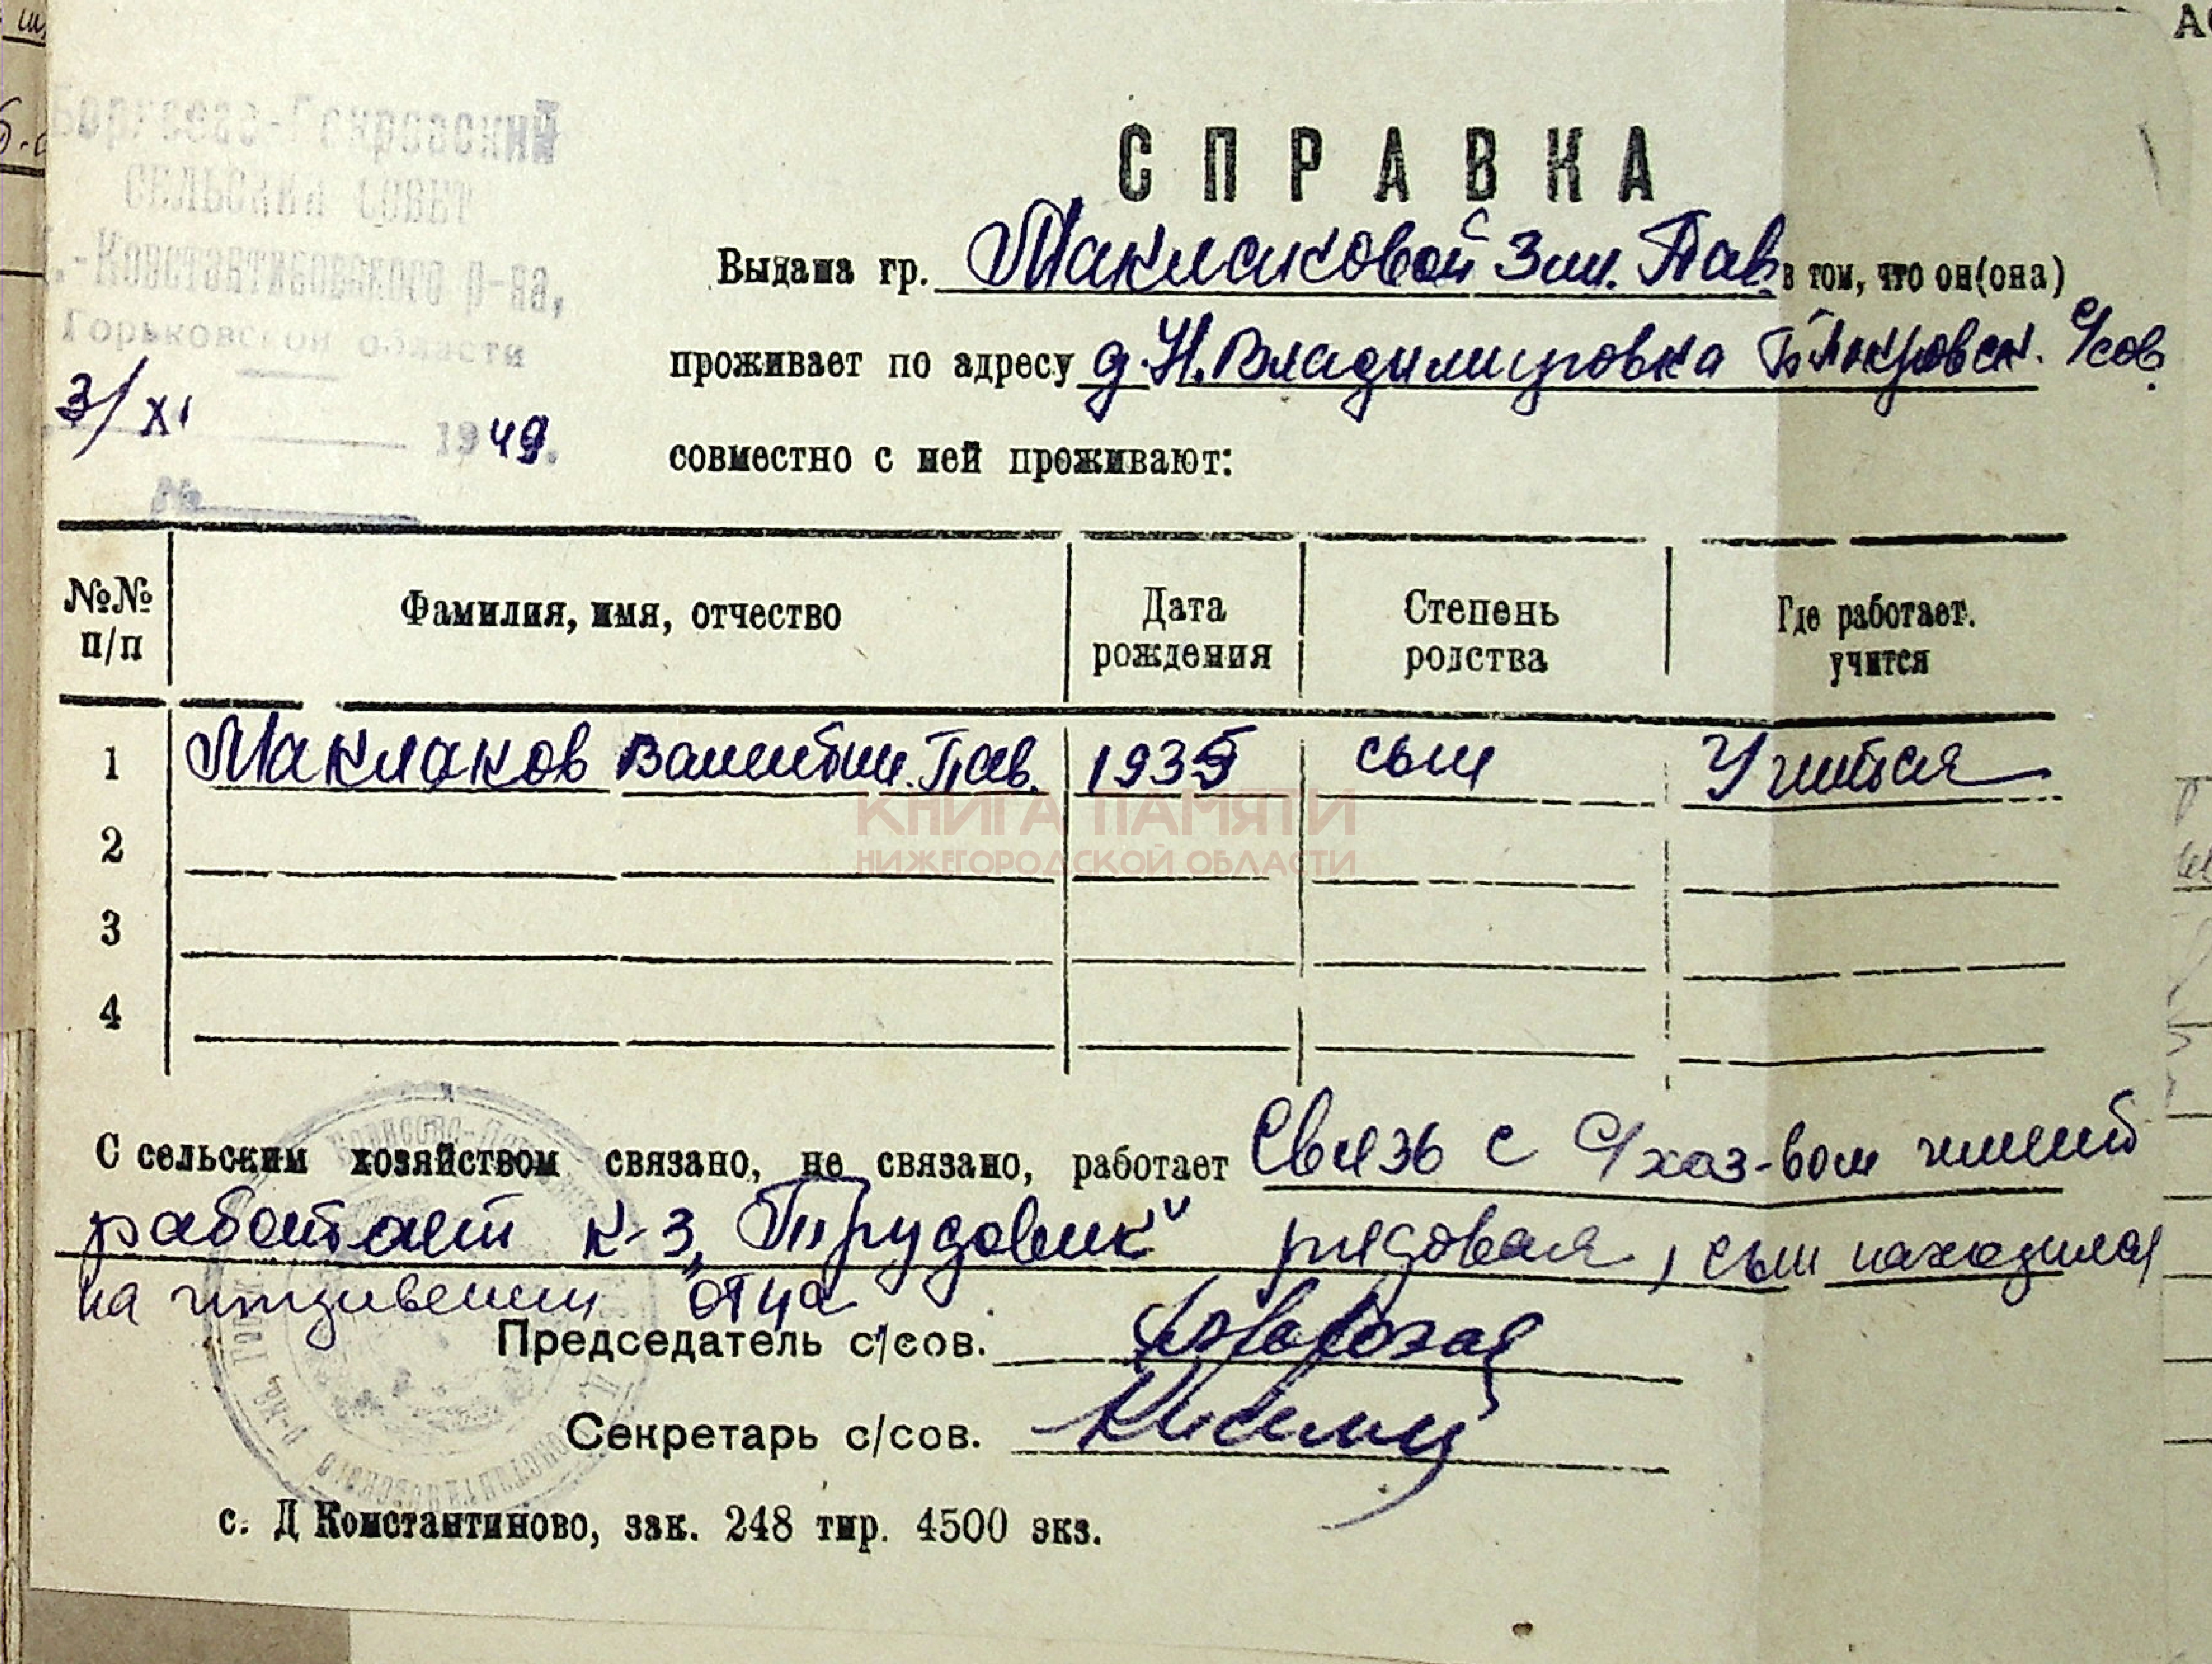 Борисово-Покровский
СЕЛЬСКИЙ СОВЕТ
.-Константиновского р-на,
Горьковской области
3/XI 1949.
№
СПРАВКА
Выдана гр. Маклаковой Зин. Пав. в том, что он(она)
проживает по адресу д. Н. Владимировка Б Покровск. с/сов.
совместно с ней проживают:
№№ п/п
Фамилия, имя, отчество
Дата рождения
Степень родства
Где работает. учится
1 Маклаков Валентин. Пав. 1935 сын Учится
КНИГА ПАМЯТИ
НИЖЕГОРОДСКОЙ ОБЛАСТИ
2
3
4
С сельским хозяйством связано, не связано, работает Связь с с/хоз-вом имеет
работает к-з „Трудовик“ рядовая, сын находился
на иждивении отца
Председатель с/сов.
Секретарь с/сов.
с. Д Константиново, зак. 248 тир. 4500 экз.